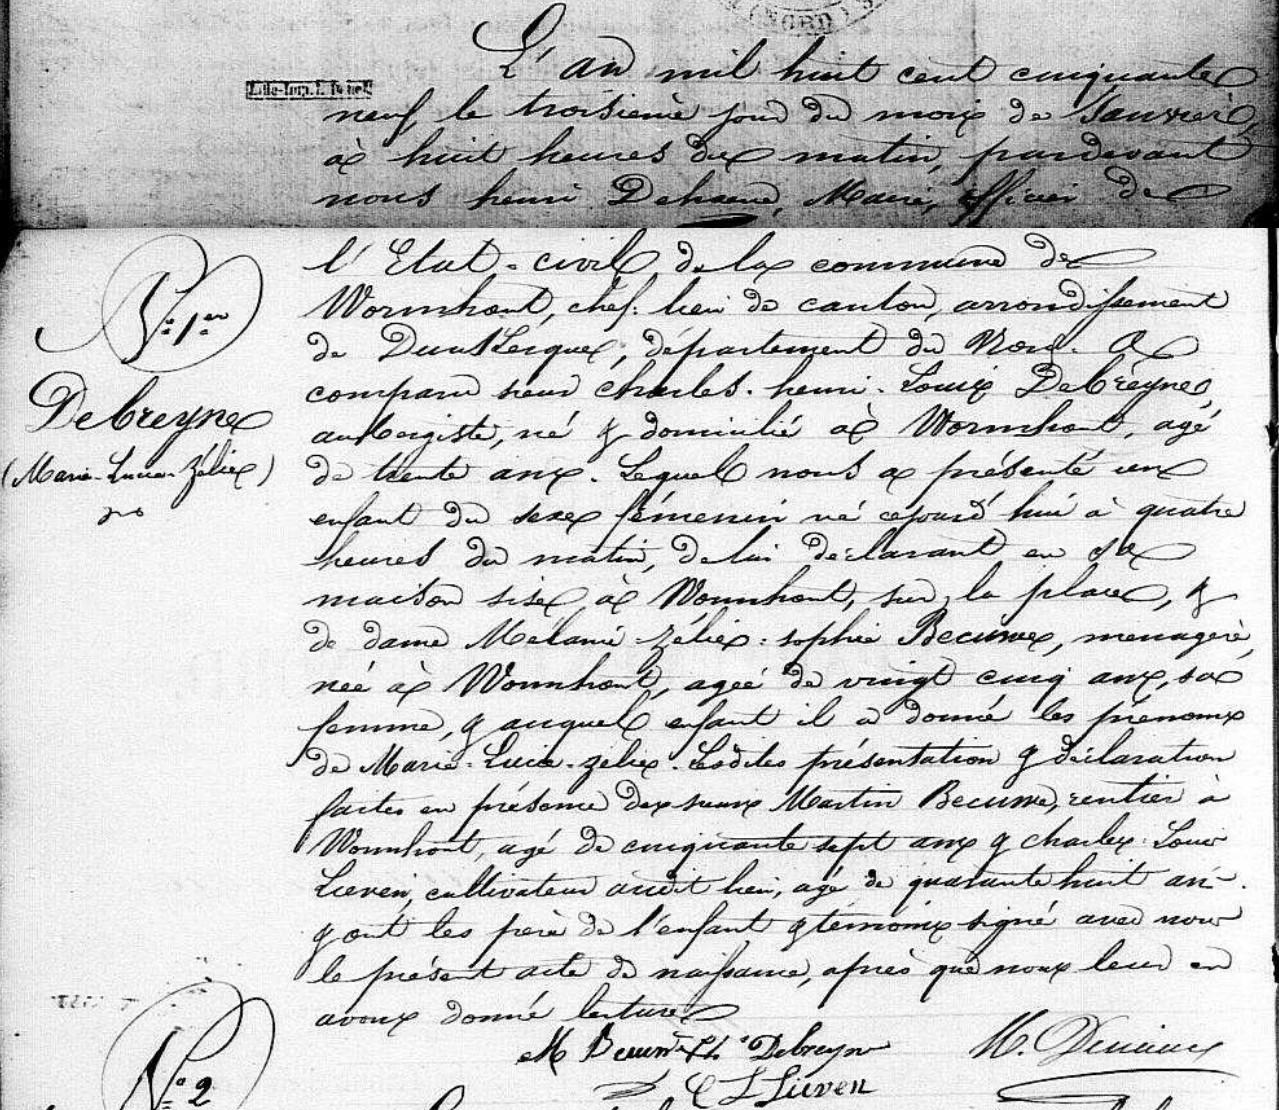 (NORD)
Lille-Imp. L. Danel
L'an mil huit cent cinquante
neuf, le troisième jour du mois de Janvier,
à huit heures du matin, pardevant
nous henri Dehaene, Maire, officier de
l'Etat-civil de la commune de
Wormhout, chef-lieu de canton, arrondissement
de Dunkerque, département du Nord. A
comparu sieur Charles-henri-Louis Debreyne,
aubergiste, né & domicilié à Wormhout, agé
de trente ans. Lequel nous a présenté un
enfant du sexe féminin né cejourd'hui à quatre
heures du matin, de lui déclarant en sa
maison sise à Wormhout, sur la place, &
de dame Mélanie-Zélie-sophie Becuwe, ménagère,
née à Wormhout, agée de vingt cinq ans, sa
femme, & auquel enfant il a donné les prénoms
de Marie-Lucie-zélie. Lesdites présentation & déclaration
faites en présence des sieurs Martin Becuwe, rentier à
Wormhout, agé de cinquante sept ans & charles-Louis
Lieven, cultivateur audit lieu, agé de quarante huit ans.
& ont les père de l'enfant & témoins signé avec nous
le présent acte de naissance, après que nous leur en
avons donné lecture
N.° 1.er
Debreyne
(Marie-Lucie-Zélie)
M Becuwe Ch Debreyne
C L Lieven
N.° 2